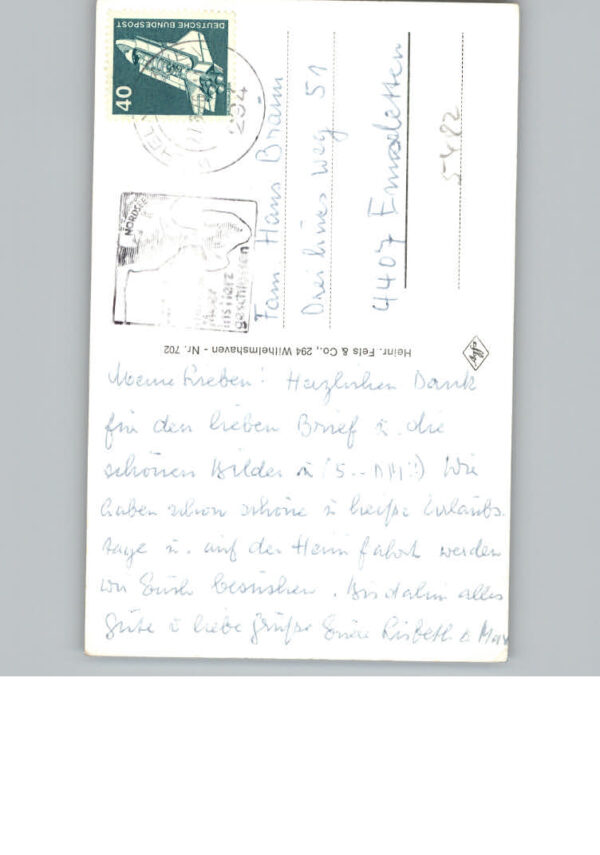 DEUTSCHE BUNDESPOST
40
294
NORDSEE
ins Herz
geschlossen
Fam Hans Braun
Dreilinesweg 51
4407 Emsdetten
5482
Heinr. Fels & Co., 294 Wilhelmshaven - Nr. 702
Meine Lieben! Herzlichen Dank
für den lieben Brief u. die
schönen Bilder u (5.- DM!!) Wir
haben schon schöne u heiße Urlaubs
tage u. auf der Heimfahrt werden
wir Euch besuchen. Bis dahin alles
Gute u liebe Grüße Eure Lisbeth u